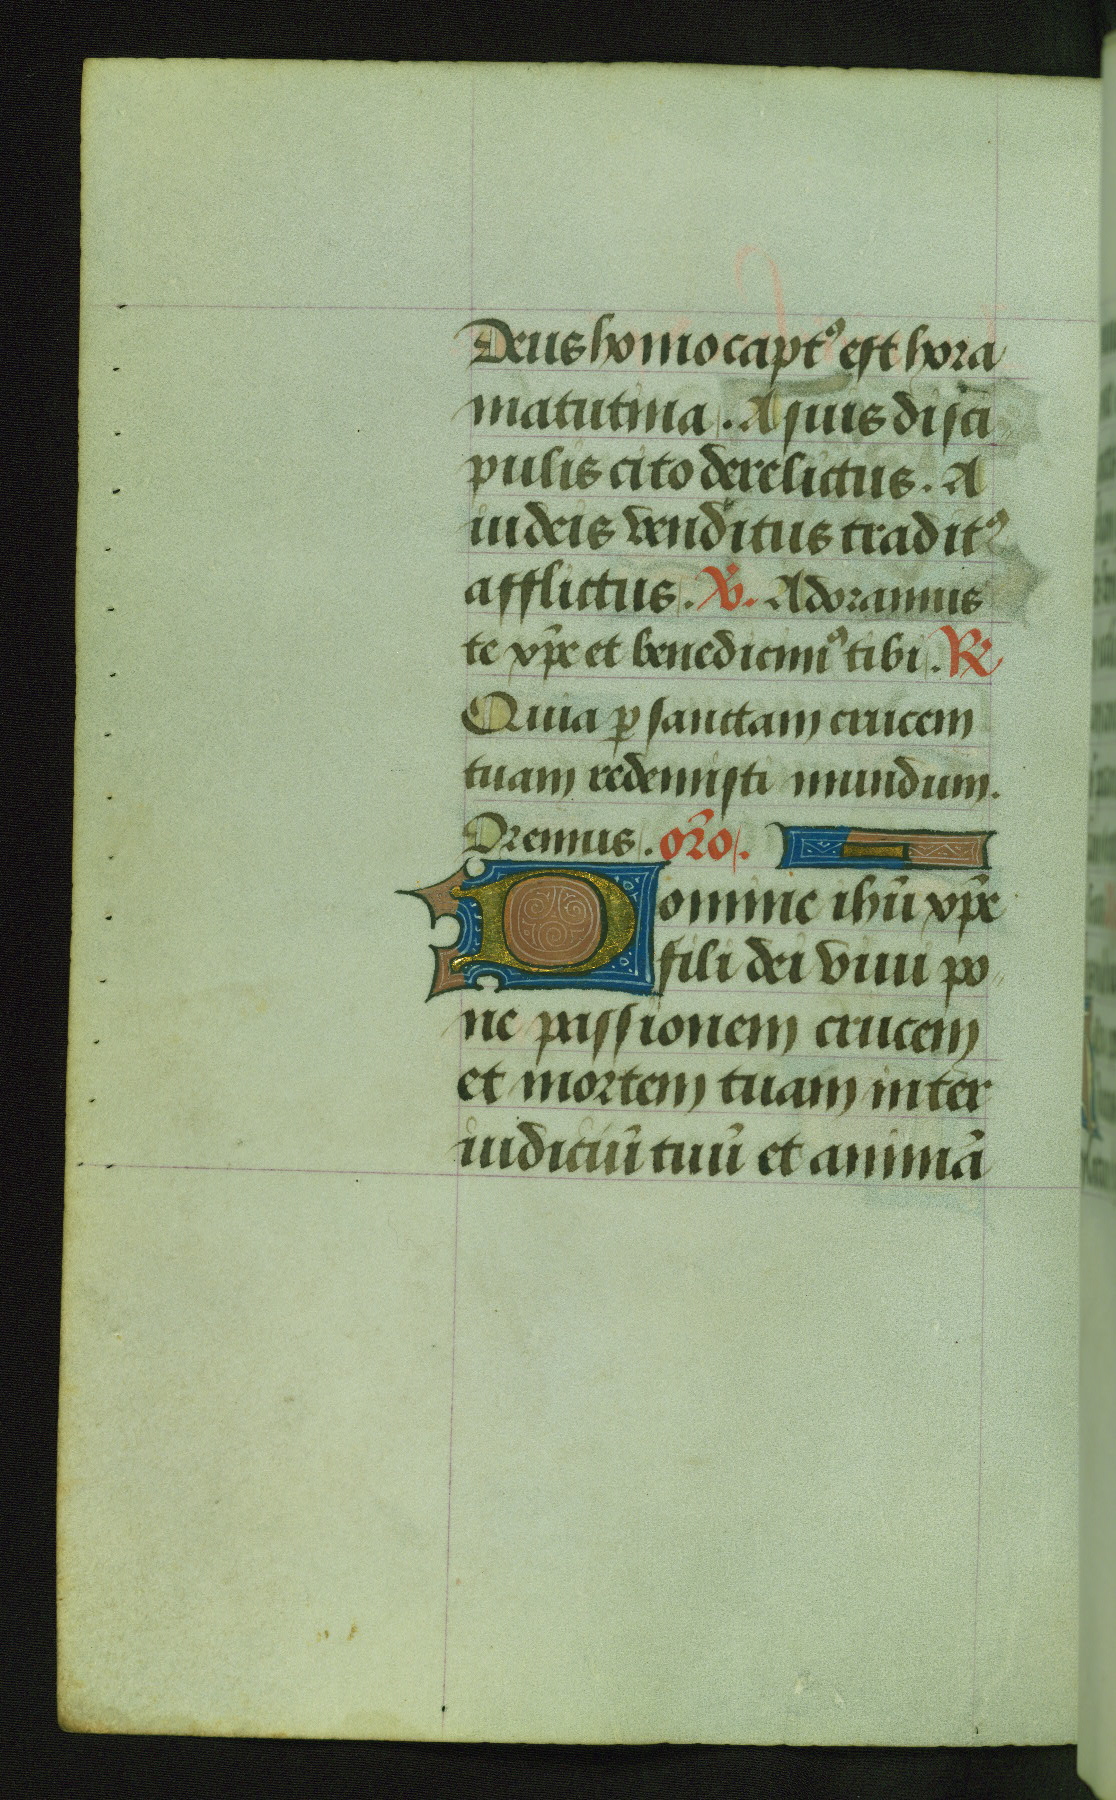 Deus homo capt⁹ est hora
matutina. A suis disci
pulis cito derelictus. A
iudeis venditus tradit⁹
afflictus. Ṽ. Adoramus
te xp̃e et benedicim⁹ tibi. R
Quia ꝑ sanctam crucem
tuam redemisti mundum.
Oremus. or̃o.
Domine ihũ xp̃e
fili dei vivi po
ne passionem crucem
et mortem tuam inter
iudiciũ tuũ et animã